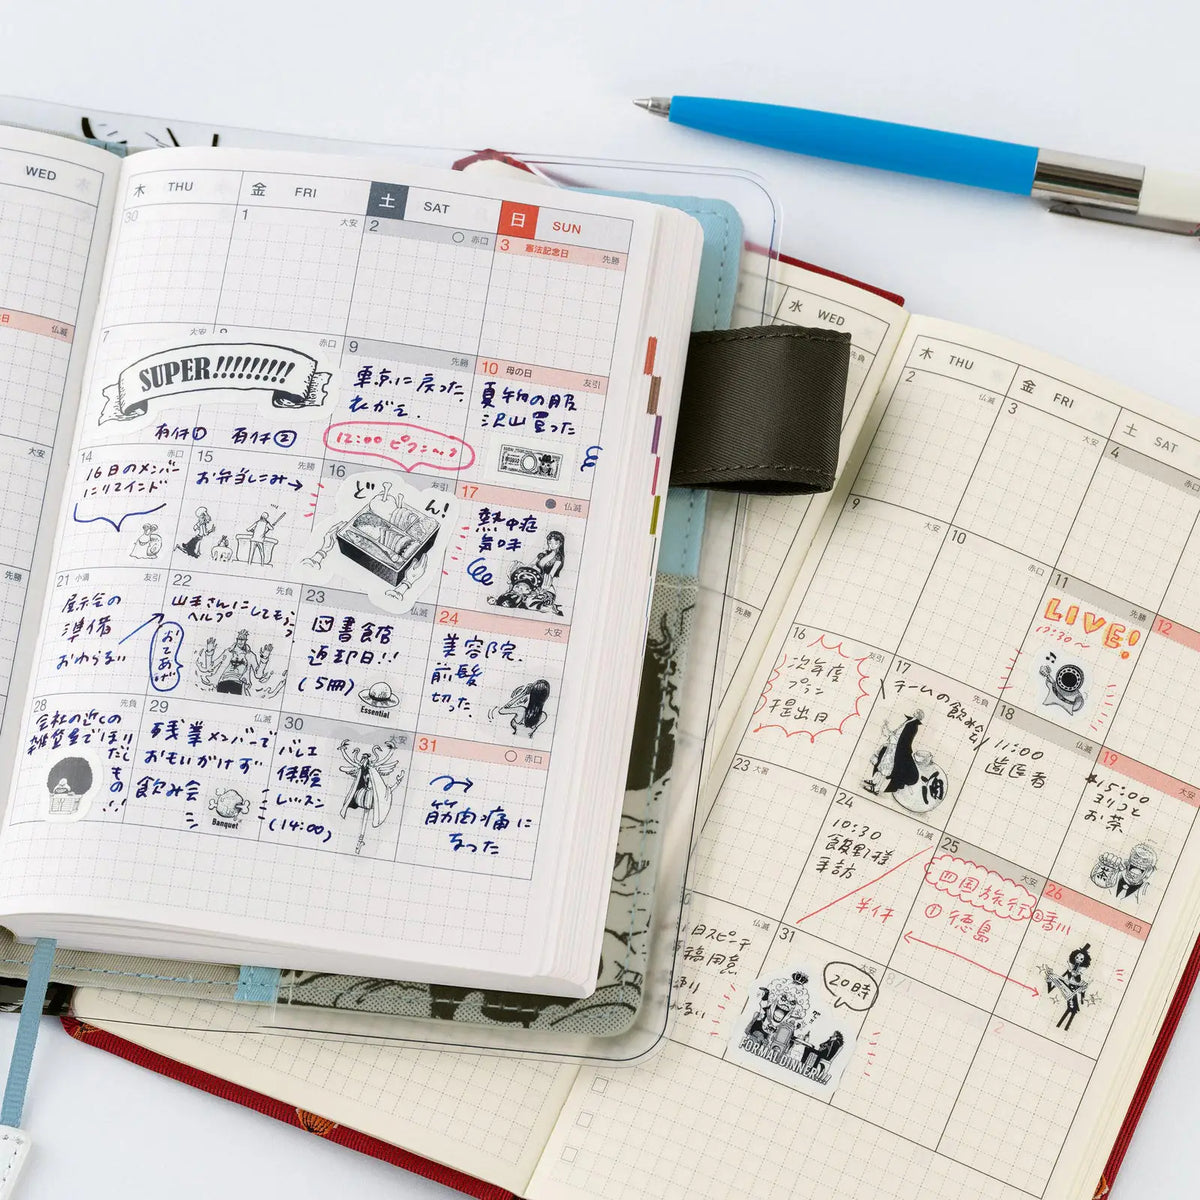 WED
木 THU
金 FRI
土 SAT
日 SUN
30
1 大安
2 赤口
3 憲法記念日 先勝
仏滅
7 大安
8 赤口
SUPER!!!!!!!!!
有休① 有休②
9 先勝
東京に戻った
12:00 ピクニック
10 母の日 友引
夏物の服
沢山買った
大安
14 赤口
16日のメンバー
にリマインド
15 先勝
お弁当しこみ→
16 友引
どん!
17 仏滅
熱中症
気味
先勝
21 小満 友引
展示会の
準備
おわらない
22 先負
山本さんにしてもらう
ヘルプ
23 仏滅
図書館
返却日!!
(5冊)
Essential
24 大安
美容院
前髪
切った
28 先負
会社の近くの
雑貨屋でほり
だし
もの
!!
29 仏滅
残業メンバーで
おもいがけず
飲み会
Banquet
30 大安
バレエ
体験
レッスン
(14:00)
31 赤口
筋肉痛に
なった
水 WED
木 THU
金 FRI
土 SAT
2 仏滅
3 大安
4 赤口
9 大安
10 赤口
11 先勝
LIVE!
12
先負
先勝
16 友引
次年度
プラン
提出日
17 先負
チームの飲み会
酒
18 仏滅
11:00
歯医者
19 大安
15:00
ヨリコと
お茶
茶
23 大暑 先負
24 仏滅
10:30
飯野様
来訪
半休
25 大安
四国旅行
① 徳島
26 赤口
②香川
30 仏滅
スピーチ
原稿用意
31 大安
20時
FORMAL DINNER!!!
8/1
2